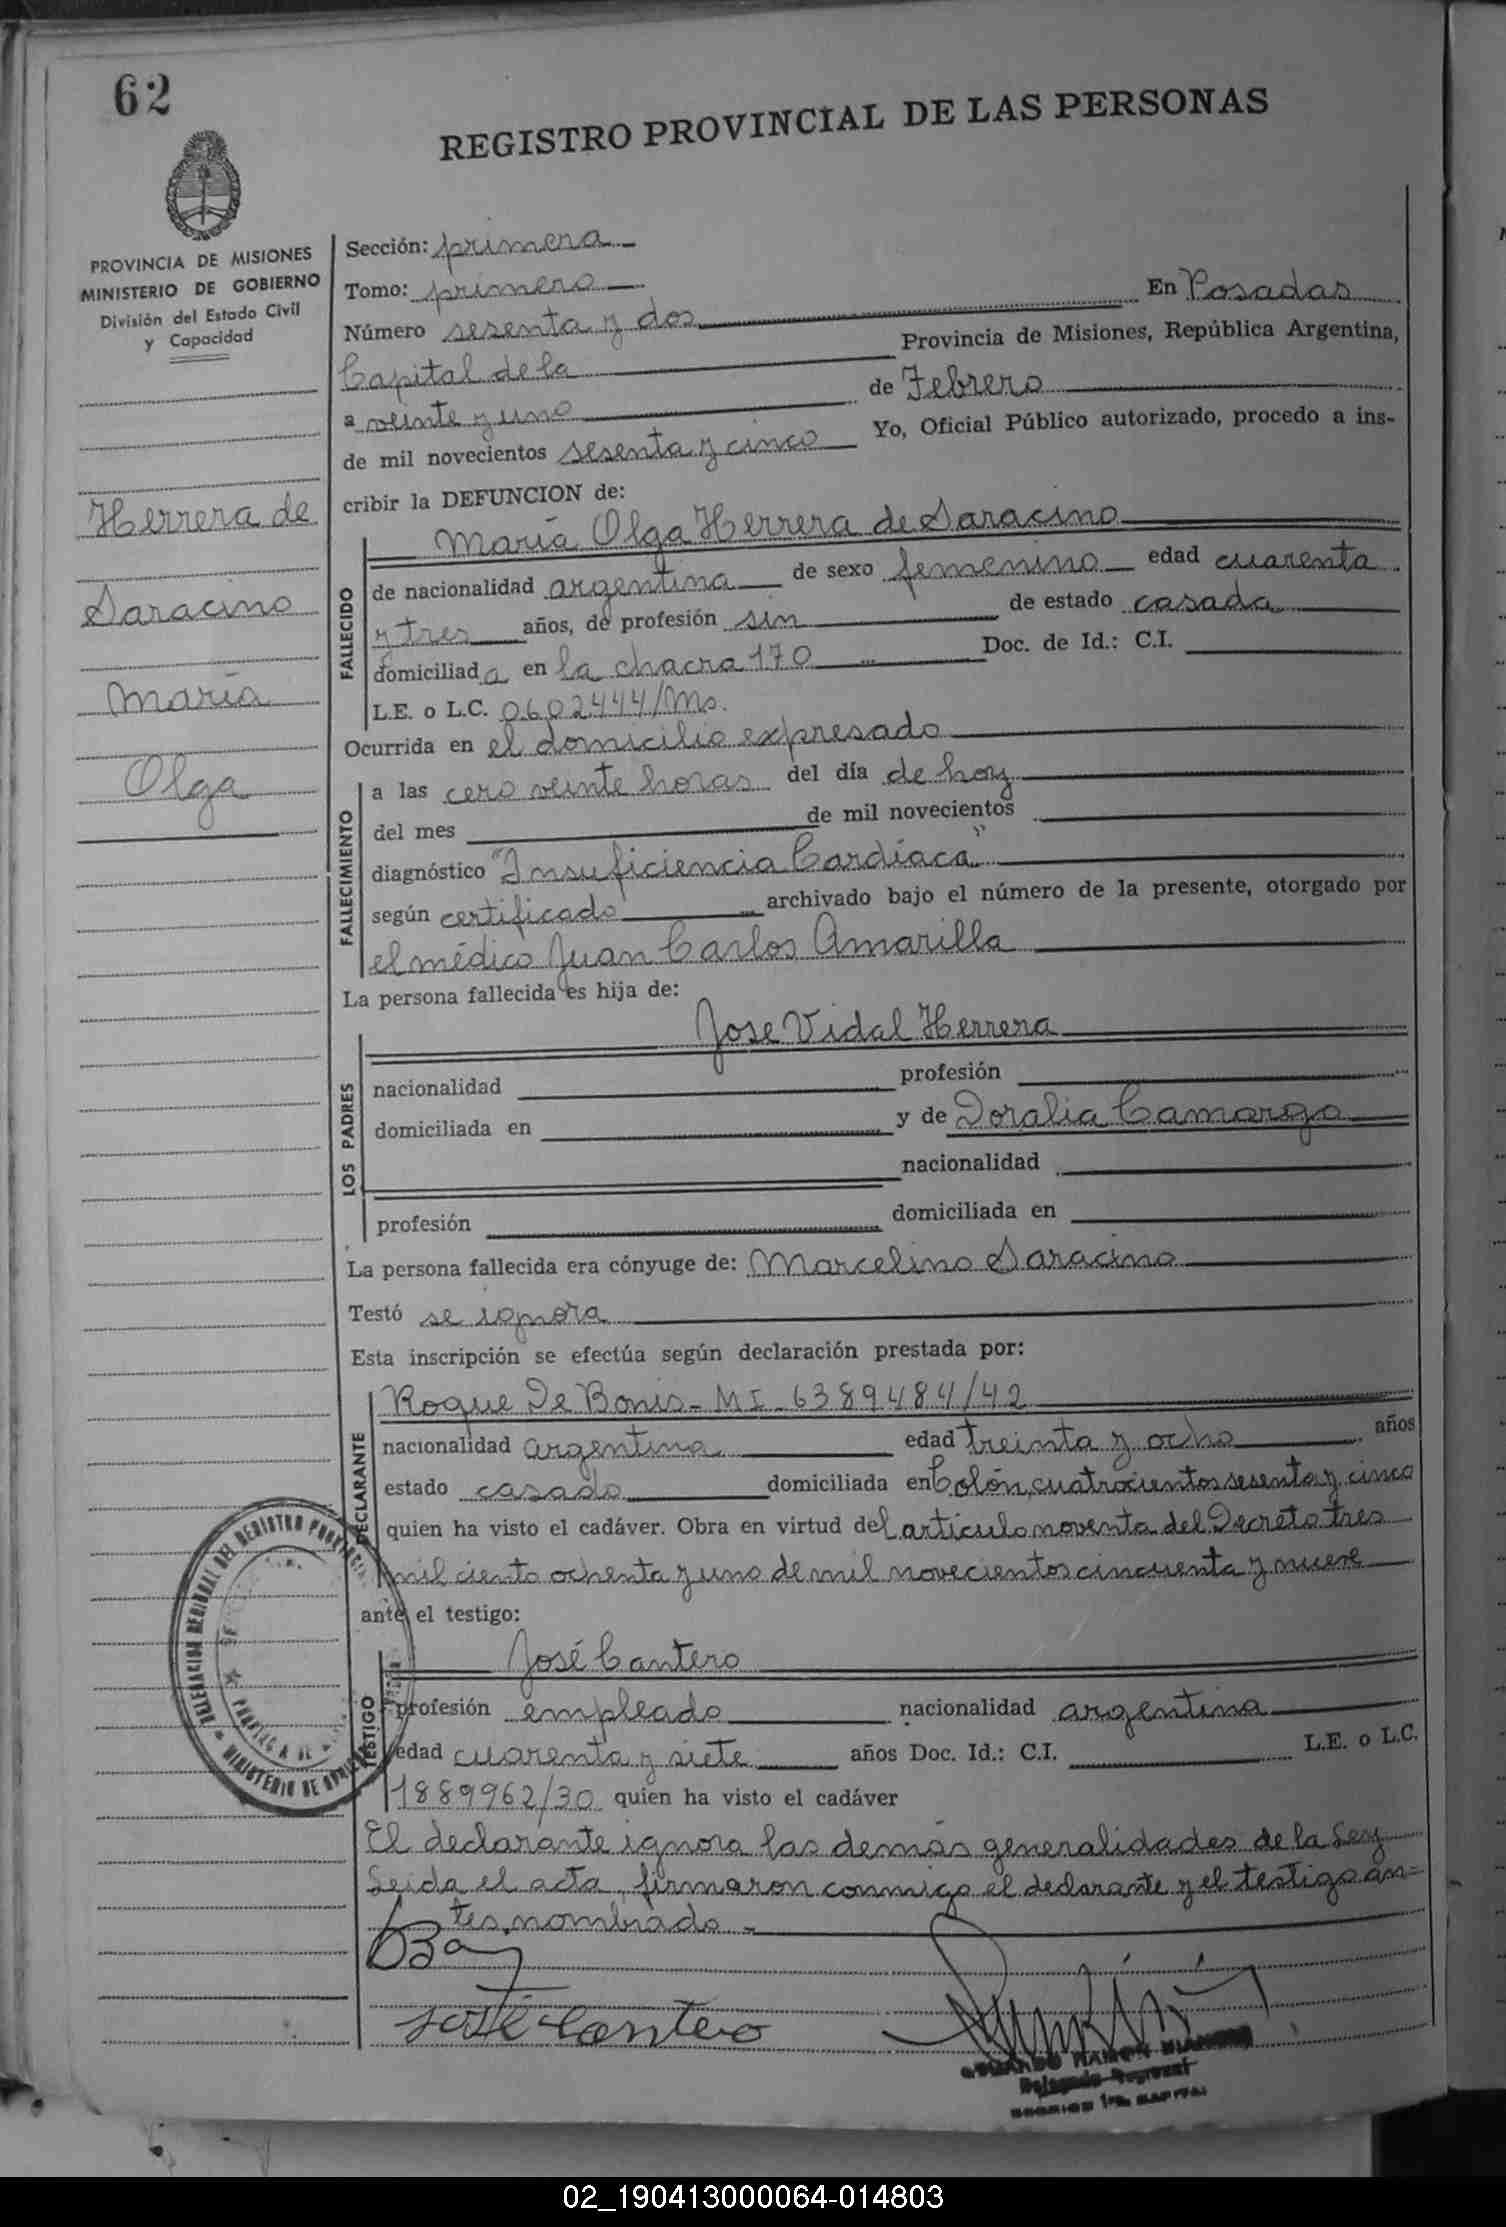 62
REGISTRO PROVINCIAL DE LAS PERSONAS
PROVINCIA DE MISIONES
MINISTERIO DE GOBIERNO
División del Estado Civil
y Capacidad
Herrera de
Saracino
María
Olga
Sección: primera
Tomo: primero
Número sesenta y dos En Posadas
Capital de la Provincia de Misiones, República Argentina,
a veinte y uno de Febrero
de mil novecientos sesenta y cinco Yo, Oficial Público autorizado, procedo a ins-
cribir la DEFUNCION de:
FALLECIDO
María Olga Herrera de Saracino
de nacionalidad argentina de sexo femenino edad cuarenta
y tres años, de profesión sin de estado casada
domiciliada en la chacra 170 Doc. de Id.: C.I.
L.E. o L.C. 0602444/Ms.
Ocurrida en el domicilio expresado
FALLECIMIENTO
a las cero veinte horas del día de hoy
del mes de mil novecientos
diagnóstico "Insuficiencia Cardíaca"
según certificado archivado bajo el número de la presente, otorgado por
el médico Juan Carlos Amarilla
La persona fallecida es hija de:
LOS PADRES
Jose Vidal Herrera
nacionalidad profesión
domiciliada en y de Doralia Camargo
nacionalidad
profesión domiciliada en
La persona fallecida era cónyuge de: Marcelino Saracino
Testó se ignora
Esta inscripción se efectúa según declaración prestada por:
DECLARANTE
Roque De Bonis - MI - 6389484/42
nacionalidad argentina edad treinta y ocho años
estado casado domiciliada en Colón, cuatrocientos sesenta y cinco
quien ha visto el cadáver. Obra en virtud del artículo noventa del Decreto tres
mil ciento ochenta y uno de mil novecientos cincuenta y nueve
ante el testigo:
TESTIGO
José Cantero
profesión empleado nacionalidad argentina
edad cuarenta y siete años Doc. Id.: C.I. L.E. o L.C.
1889962/30 quien ha visto el cadáver
El declarante ignora las demás generalidades de la Ley
Leída el acta, firmaron conmigo el declarante y el testigo an=
tes nombrado -
José Cantero
RAMON
Delegado Regional
DELEGACION REGIONAL DEL REGISTRO
MINISTERIO DE
02_190413000064-014803